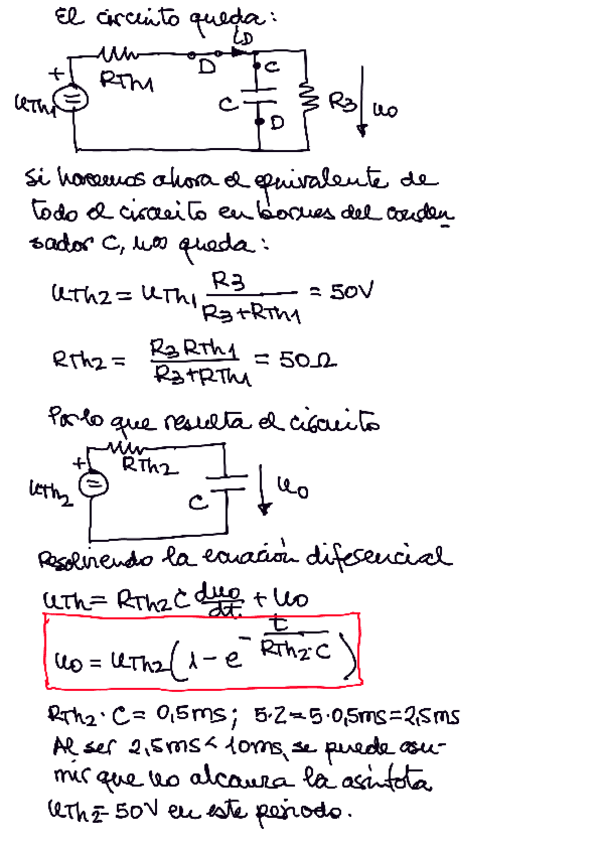 El circuito queda:
iD
+ RTh1 D C
uTh1 C R3 uo
D
Si hacemos ahora el equivalente de
todo el circuito en bornes del conden
sador C, nos queda:
uTh2 = uTh1 R3 / (R3+RTh1) = 50V
RTh2 = R3 RTh1 / (R3+RTh1) = 50Ω
Por lo que resulta el circuito
+ RTh2
uTh2 C uo
Resolviendo la ecuación diferencial
uTh = RTh2 C duo/dt + uo
uo = uTh2 (1 - e^(- t / (RTh2·C)))
RTh2 · C = 0,5ms; 5·Z = 5·0,5ms = 2,5ms
Al ser 2,5ms < 10ms, se puede asu-
mir que uo alcanza la asíntota
uTh2 = 50V en este periodo.